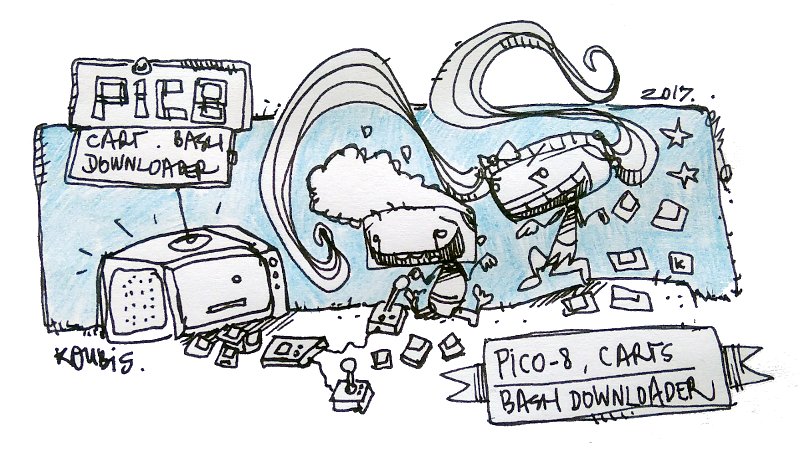 PICO8
CART. BASH
DOWNLOADER
2017.
K
KOUBIS.
PICO-8, CARTS
BASH DOWNLOADER